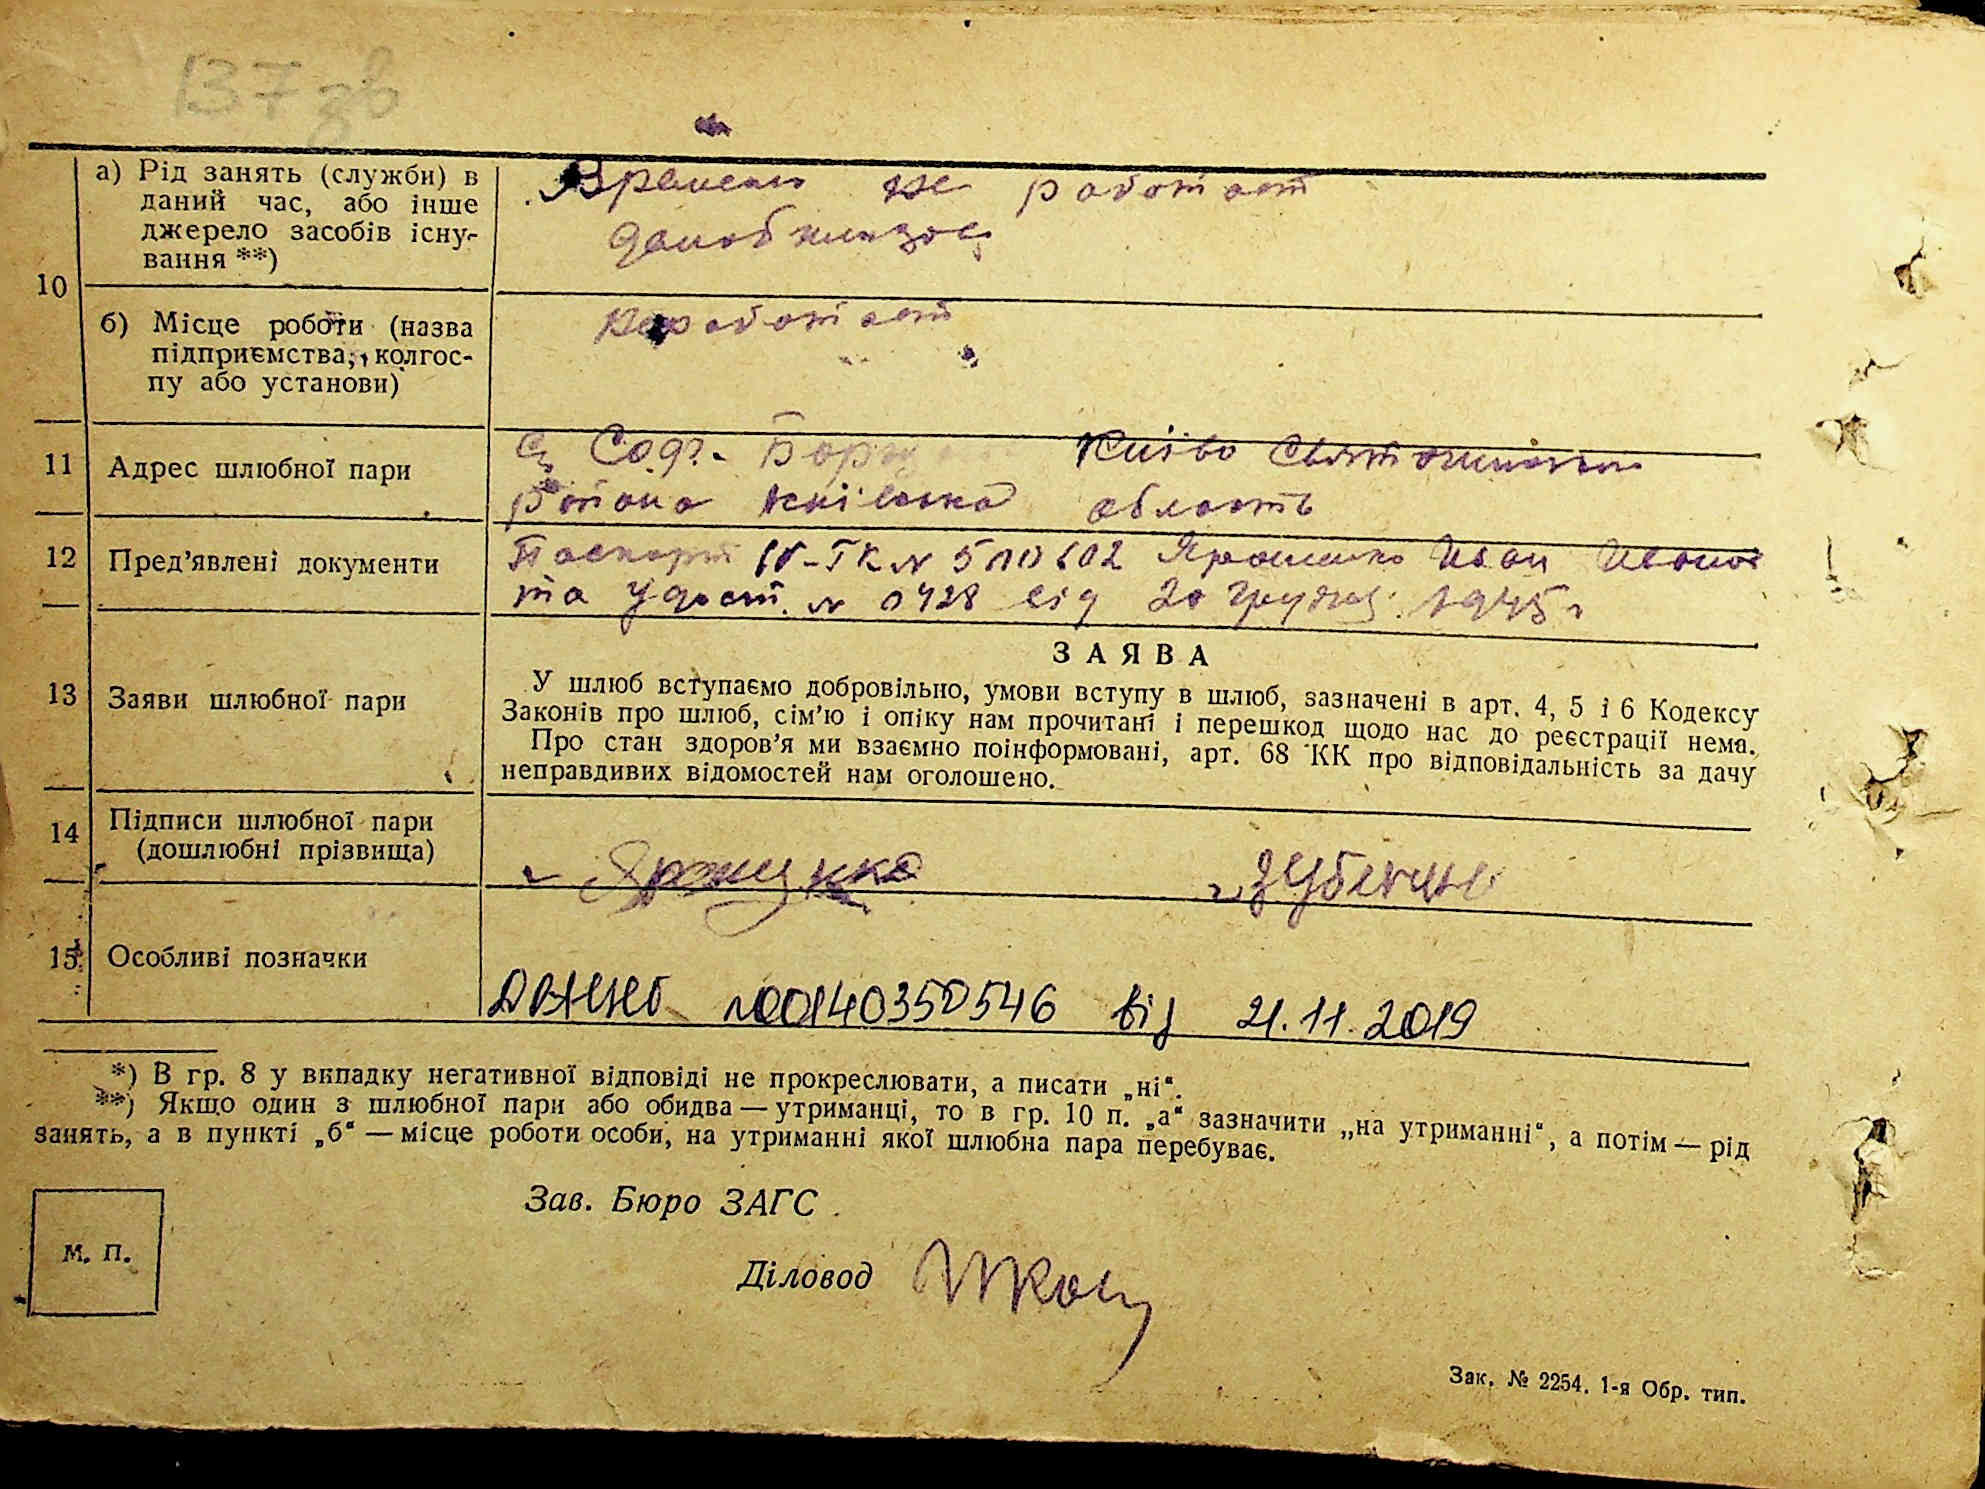 137 зв
а) Рід занять (служби) в
даний час, або інше
джерело засобів існу-
вання **)
Временно не работает
домохозяй
10
б) Місце роботи (назва
підприємства, колгос-
пу або установи)
не работает
11 Адрес шлюбної пари
с. Соф. Борщ Київо Святошинського
району Київська область
12 Пред’явлені документи
Паспорт ІV-ГК № 510602 Ярошенко Иван Иванов
та Удост. № 0428 від 20 грудня 1945 г
13 Заяви шлюбної пари
ЗАЯВА
У шлюб вступаємо добровільно, умови вступу в шлюб, зазначені в арт. 4, 5 і 6 Кодексу
Законів про шлюб, сім’ю і опіку нам прочитані і перешкод щодо нас до реєстрації нема.
Про стан здоров’я ми взаємно поінформовані, арт. 68 КК про відповідальність за дачу
неправдивих відомостей нам оголошено.
14 Підписи шлюбної пари
(дошлюбні прізвища)
15 Особливі позначки
№00140350546 від 21.11.2019
*) В гр. 8 у випадку негативної відповіді не прокреслювати, а писати „ні“.
**) Якщо один з шлюбної пари або обидва — утриманці, то в гр. 10 п. „а“ зазначити „на утриманні“, а потім — рід
занять, а в пункті „б“ — місце роботи особи, на утриманні якої шлюбна пара перебуває.
Зав. Бюро ЗАГС
М. П.
Діловод
Зак. № 2254. 1-я Обр. тип.